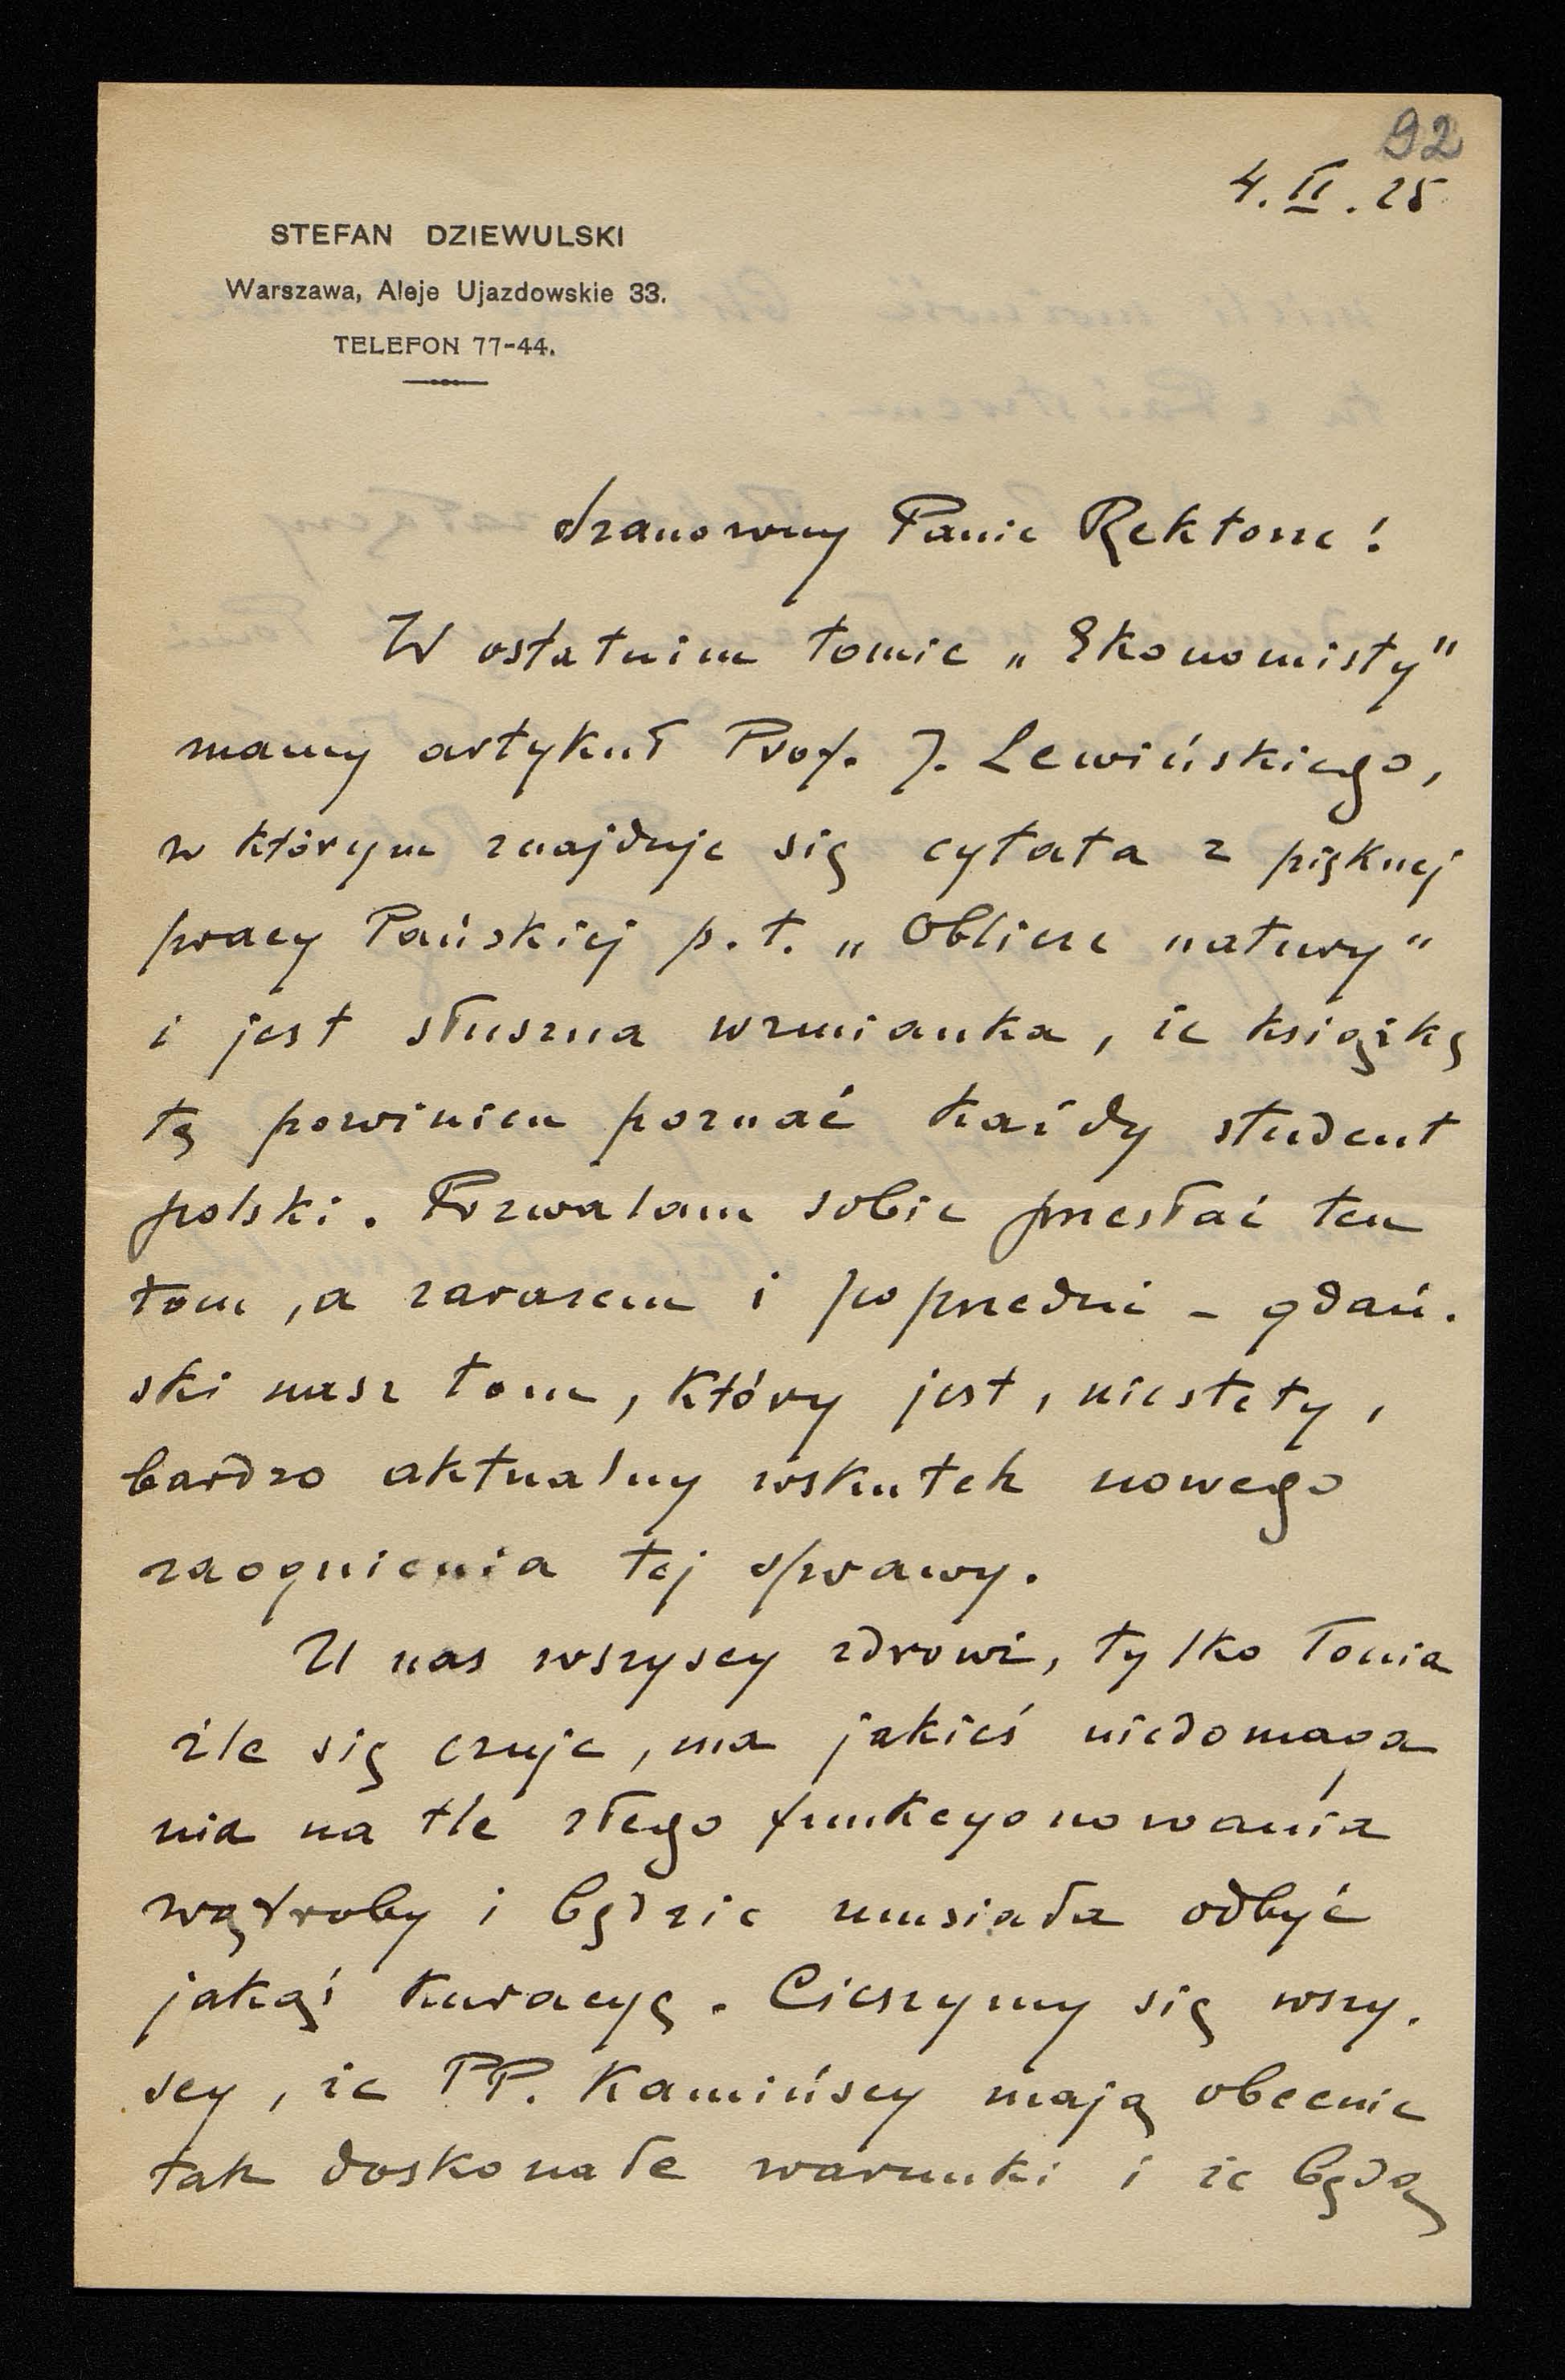 92
4. II. 25
STEFAN DZIEWULSKI
Warszawa, Aleje Ujazdowskie 33.
TELEFON 77-44.
Szanowny Panie Rektorze!
W ostatnim tomie „Ekonomisty"
mamy artykuł Prof. J. Lewińskiego,
w którym znajduje się cytata z pięknej
pracy Pańskiej p. t. „Oblicze natury"
i jest słuszna wzmianka, że książkę
tę powinien poznać każdy student
polski. Pozwalam sobie przesłać ten
tom, a zarazem i poprzedni – gdań-
ski nasz tom, który jest, niestety,
bardzo aktualny wskutek nowego
zaognienia tej sprawy.
U nas wszyscy zdrowi, tylko Tonia
źle się czuje, ma jakieś niedomaga
nia na tle złego funkcyonowania
wątroby i będzie musiała odbyć
jakąś kuracyę. Cieszymy się wszy-
scy, że PP. Kamińscy mają obecnie
tak doskonałe warunki i że będą